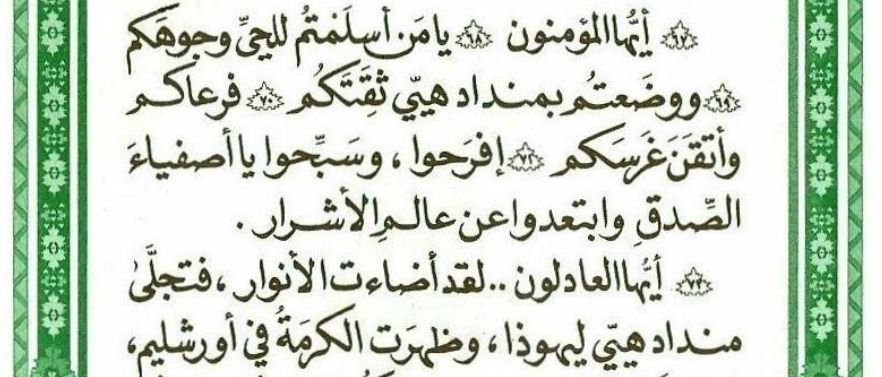 ﴿٦٧﴾ أيُّها المؤمنون ﴿٦٨﴾ يا مَن أسلَمتُم للحيِّ وجوهَكم
﴿٦٩﴾ ووضَعتُم بمنداد هيّي ثقتَكُم ﴿٧٠﴾ فرعاكم
وأتقَنَ غَرسَكم ﴿٧١﴾ إفرَحوا ، وسَبِّحوا يا أصفياءَ
الصِّدقِ وابتعدوا عن عالمِ الأشرار .
﴿٧٢﴾ أيُّها العادلون .. لقد أضاءت الأنوار ، فتجلَّىٰ
منداد هيّي ليهوذا ، وظهرَت الكرمَةُ في أورشليم،